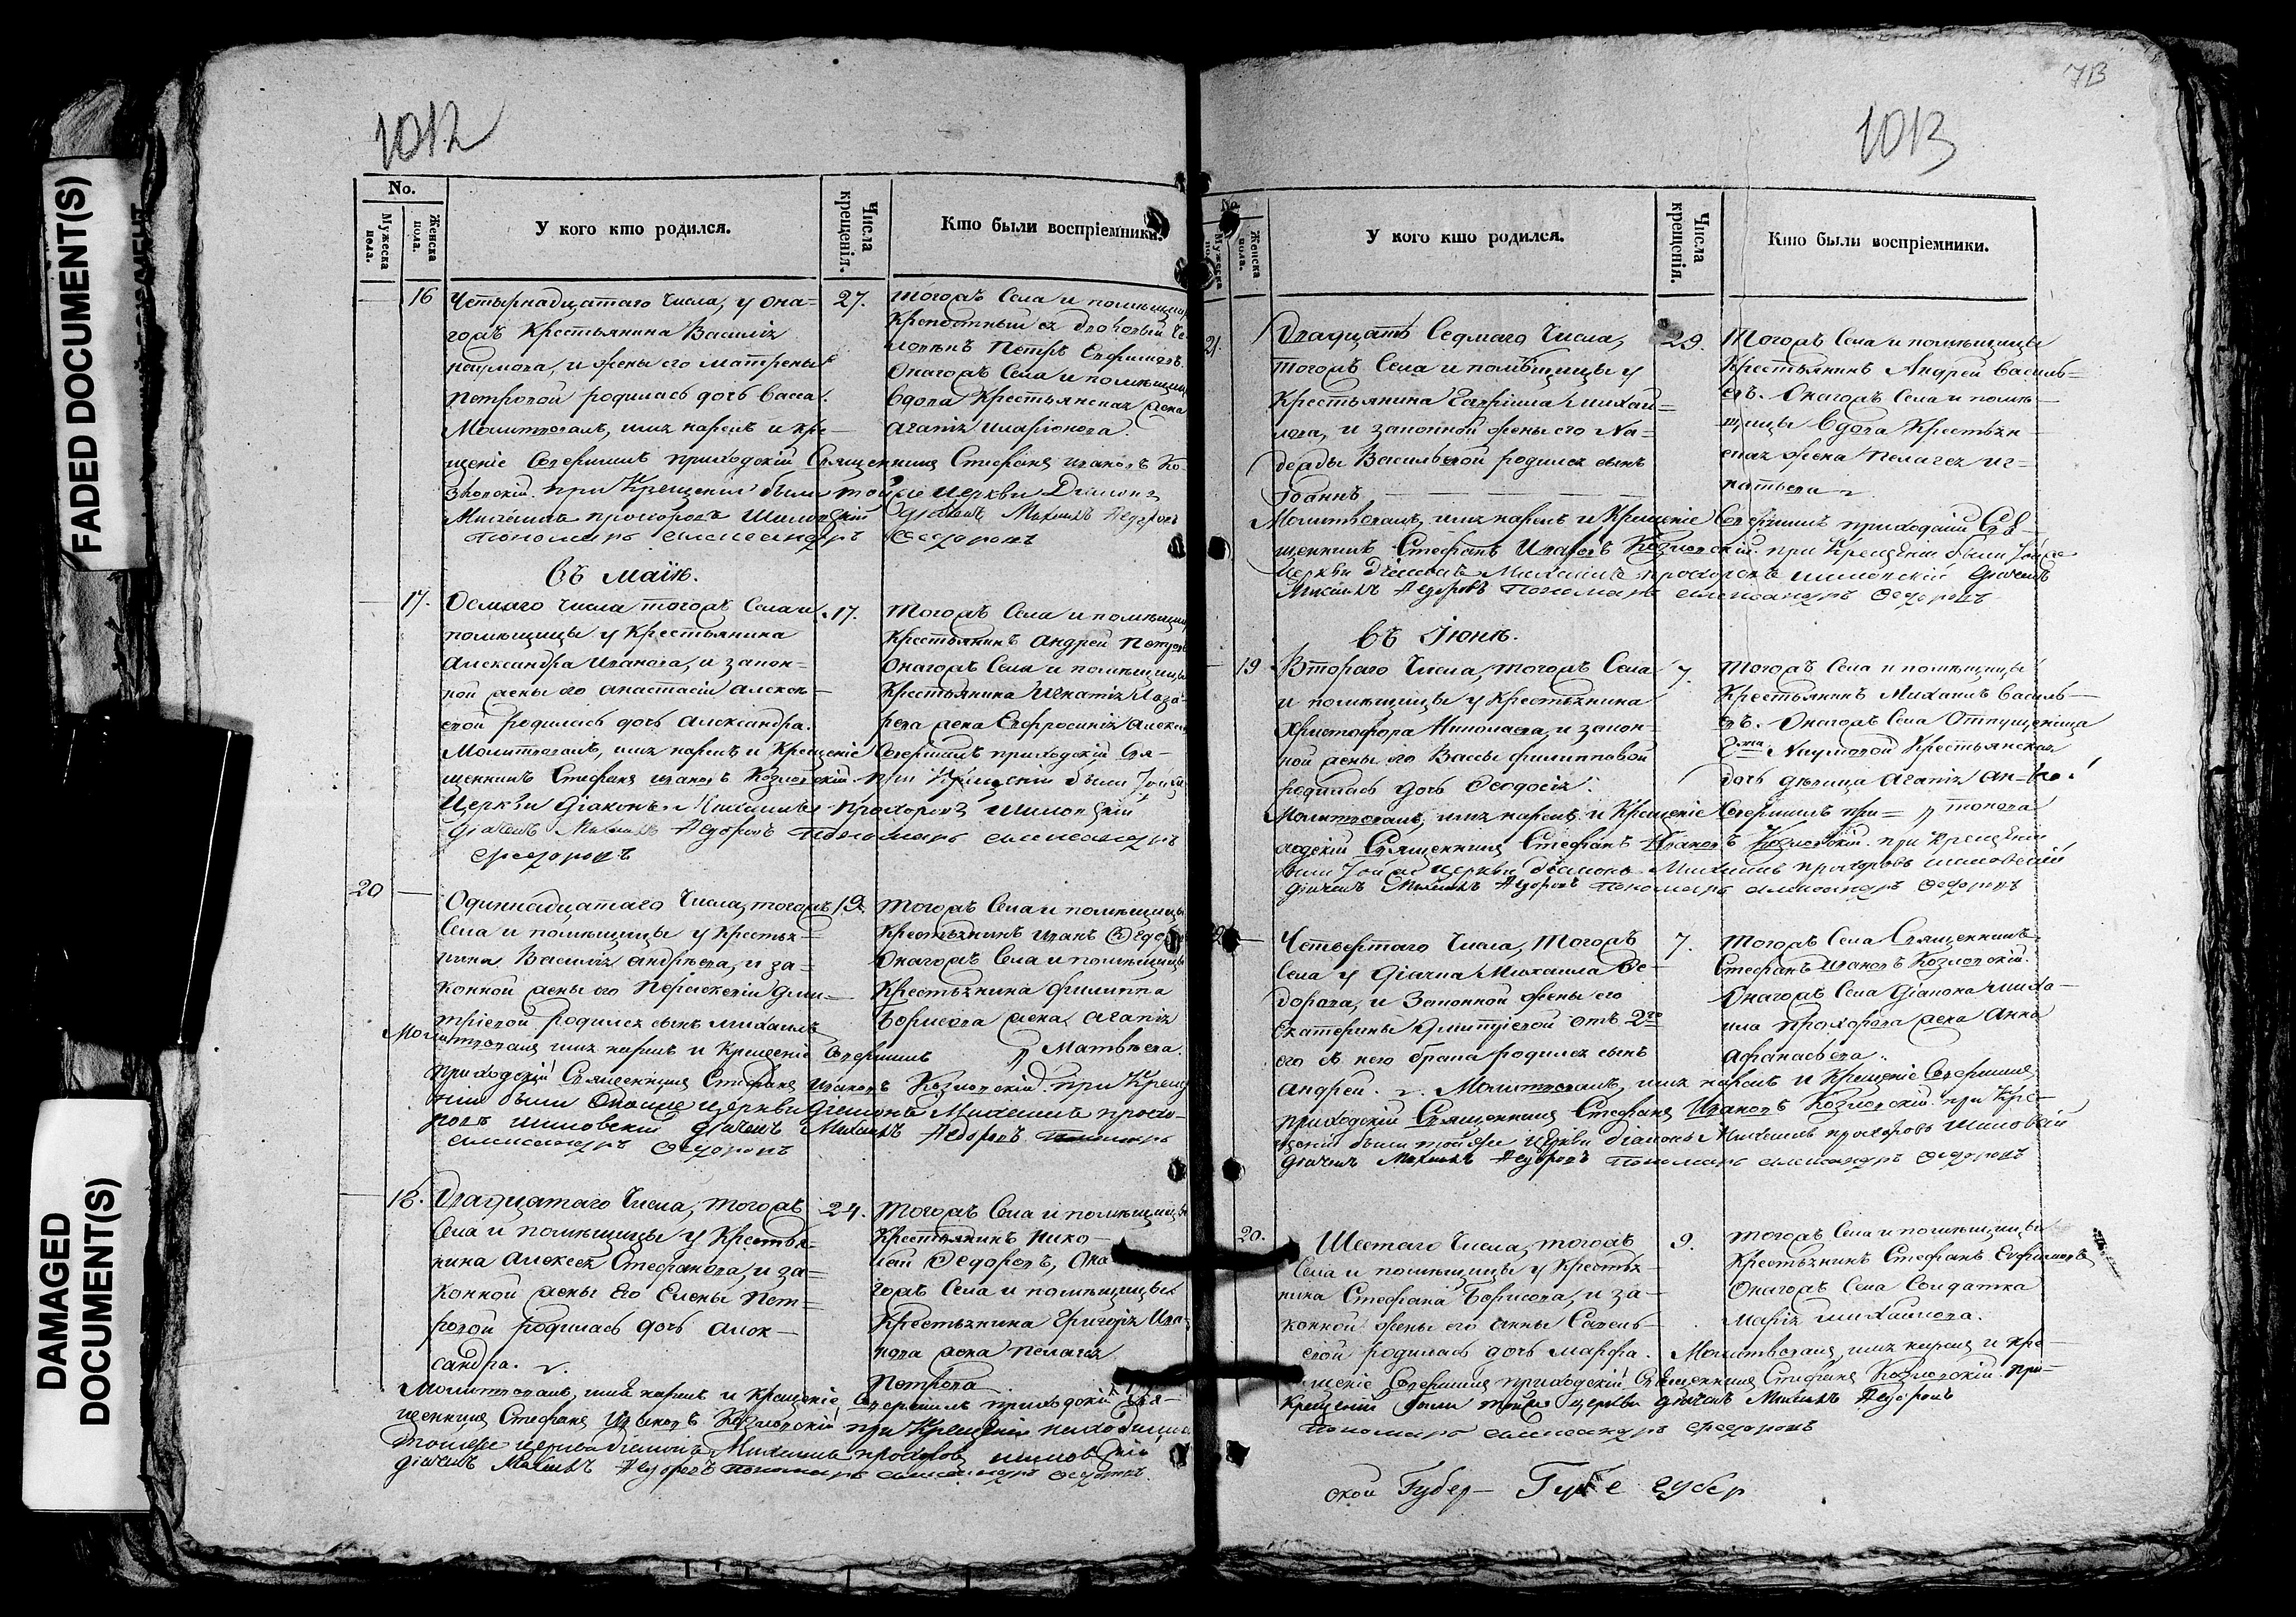 FADED DOCUMENT(S)
DAMAGED
DOCUMENT(S)
1012
No.
Мужеска пола.
Женска пола.
У кого кто родился.
Числа крещенія.
Кто были воспріемники.
16
Четырнадцатаго числа, у она=
гожъ крестьянина Василія
Наумова, и жены его Матрены
Петровой родилась дочь Васса.
Молитвовалъ, имя нарекъ и кре-
щеніе совершилъ приходскій Священникъ Стефанъ Ивановъ Ко
зловскій. при Крещеніи были тойже церкви Діаконъ
Михаилъ Прохоровъ Шиловскій Дьячекъ Михаилъ Федоровъ
Пономарь Александръ Федоровъ
27.
Тогожъ Села и помѣщицы
Крепостный
Петръ Евфимовъ.
Онагожъ Села и помѣщицы
вдова Крестьянская жена
Агафія Иларіонова.
въ Маіѣ.
17.
Осмаго числа тогожъ Села и
помѣщицы у Крестьянина
Александра Иванова, и закон-
ной жены его Анастасіи Алексѣ-
евой родилась дочь Александра.
Молитвовалъ, имя нарекъ и Крещеніе совершилъ приходскій Свя-
щенникъ Стефанъ Ивановъ Козловскій. при Крещеніи были тойже
Церкви Діаконъ Михаилъ Прохоровъ Шиловскій
Дьячекъ Михаилъ Федоровъ Пономарь Александръ
Федоровъ
17.
Тогожъ Села и помѣщицы
Крестьянинъ Андрей Петровъ
Онагожъ Села и помѣщицы
Крестьянина Игнатія Лаза-
рева жена Евфросинія Алексѣ
20
Одиннадцатаго числа, тогожъ
Села и помѣщицы у Крестья=
нина Василія Андрѣева, и за=
конной жены его Параскевіи Дми-
тріевой родился сынъ Михаилъ
Молитвовалъ имя нарекъ и Крещеніе совершилъ
приходскій Священникъ Стефанъ Ивановъ Козловскій. при Креще
ніи были Онойже церкви Діаконъ Михаилъ Прохо-
ровъ Шиловскій Дьячекъ Михаилъ Федоровъ Пономарь
Александръ Федоровъ
19.
Тогожъ Села и помѣщицы
Крестьянинъ Иванъ Федо
Онагожъ Села и помѣщицы
Крестьянина Филиппа
Борисова жена Агафія
Матвѣева.
18.
Двадцатаго числа, тогожъ
Села и помѣщицы у Крестья-
нина Алексѣя Стефанова, и за=
конной жены его Елены Пет=
ровой родилась дочь Алек-
сандра.
Молитвовалъ, имя нарекъ и Крещеніе совершилъ приходскій Свя-
щенникъ Стефанъ Ивановъ Козловскій при Крещеніи находились
тойже церкви діаконъ Михаилъ Прохоровъ Шиловскій
Дьячекъ Михаилъ Федоровъ Пономарь Александръ Федоровъ.
24.
Тогожъ Села и помѣщицы
Крестьянинъ Нико-
лай Федоровъ, Она
гожъ Села и помѣщицы
Крестьянина Григорія Ива-
нова жена Пелагея
Петрова
7В
1013
No.
Мужеска пола.
Женска пола.
У кого кто родился.
Числа крещенія.
Кто были воспріемники.
21.
Двадцать Седмаго числа,
тогожъ Села и помѣщицы у
Крестьянина Гавріила Михай=
лова, и законной жены его На=
дежды Васильевой родился сынъ
Іоаннъ
Молитвовалъ, имя нарекъ и Крещеніе совершилъ приходскій Свя-
щенникъ Стефанъ Ивановъ Козловскій. при Крещеніи были тойже
церкви діаконъ Михаилъ Прохоровъ Шиловскій Дьячекъ
Михаилъ Федоровъ Пономарь Александръ Федоровъ
29.
Тогожъ Села и помѣщицы
Крестьянинъ Андрей Василь=
евъ. Онагожъ Села и помѣ-
щицы вдова Крестьян-
ская жена Пелагея Иг=
натьева
въ Іюнѣ.
19
Втораго числа, тогожъ Села
и помѣщицы у Крестьянина
Христофора Николаева, и закон-
ной жены его Вассы Филипповой
родилась дочь Феодосія.
Молитвовалъ, имя нарекъ и Крещеніе совершилъ при=
ходскій Священникъ Стефанъ Ивановъ Козловскій. при Крещеніи
были тойже церкви діаконъ Михаилъ Прохоровъ Шиловскій
Дьячекъ Михаилъ Федоровъ Пономарь Александръ Федоровъ
7.
Тогожъ Села и помѣщицы
Крестьянинъ Михаилъ Василь-
евъ. Онагожъ Села Отпущеница
Наумовой Крестьянская
дочь дѣвица Агафія Ан-
тонова
Четвертаго числа, тогожъ
Села у дьячка Михаила Фе-
дорова, и Законной жены его
Екатерины Дмитріевой отъ 2го
его съ нею брака родился сынъ
Андрей. Молитвовалъ, имя нарекъ и Крещеніе совершилъ
приходскій Священникъ Стефанъ Ивановъ Козловскій. при Кре-
щеніи были тойже церкви діаконъ Михаилъ Прохоровъ Шиловскій
Дьячекъ Михаилъ Федоровъ Пономарь Александръ Федоровъ
7.
Тогожъ Села Священникъ
Стефанъ Ивановъ Козловскій.
Онагожъ Села діакона Миха-
ила Прохорова жена Анна
Афанасьева.
20.
Шестаго числа, тогожъ
Села и помѣщицы у Крестья-
нина Стефана Борисова, и за-
конной жены его Анны Савель-
евой родилась дочь Марфа. Молитвовалъ, имя нарекъ и кре-
щеніе совершилъ приходскій Священникъ Стефанъ Козловскій. При-
Крещеніи были тойже церкви дьячекъ Михаилъ Федоровъ
Пономарь Александръ Федоровъ
9.
Тогожъ Села и помѣщицы
Крестьянинъ Стефанъ Евфимовъ
Онагожъ Села Солдатка
Марія Михайлова.
ской Губер- Губе губер